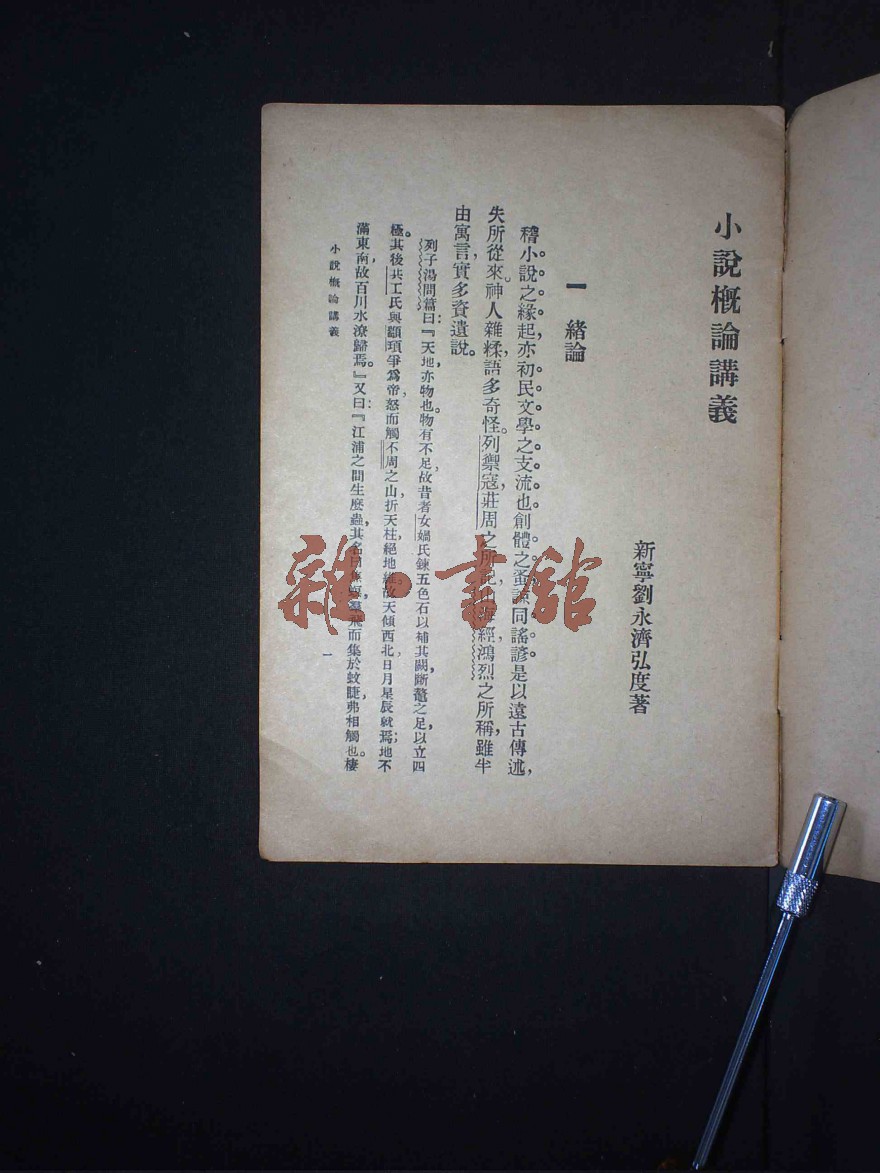 小說槪論講義
新寧劉永濟弘度著
一　緒論
稽小說之緣起，亦初民文學之支流也。創體之蚤，謙同謠諺。是以遠古傳述，
失所從來。神人雜糅，語多奇怪。列禦寇莊周之所記，山海經鴻烈之所稱，雖半
由寓言，實多資遺說。
列子湯問篇曰：『天地亦物也。物有不足，故昔者女媧氏鍊五色石以補其闕，斷鼇之足以立四
極。其後共工氏與顓頊爭爲帝，怒而觸不周之山，折天柱，絕地維。故天傾西北，日月星辰就焉；地不
滿東南，故百川水潦歸焉。』又曰：『江浦之間生麼蟲，其名曰焦螟，羣飛而集於蚊睫，弗相觸也。棲
小說槪論講義
一
雜·書館